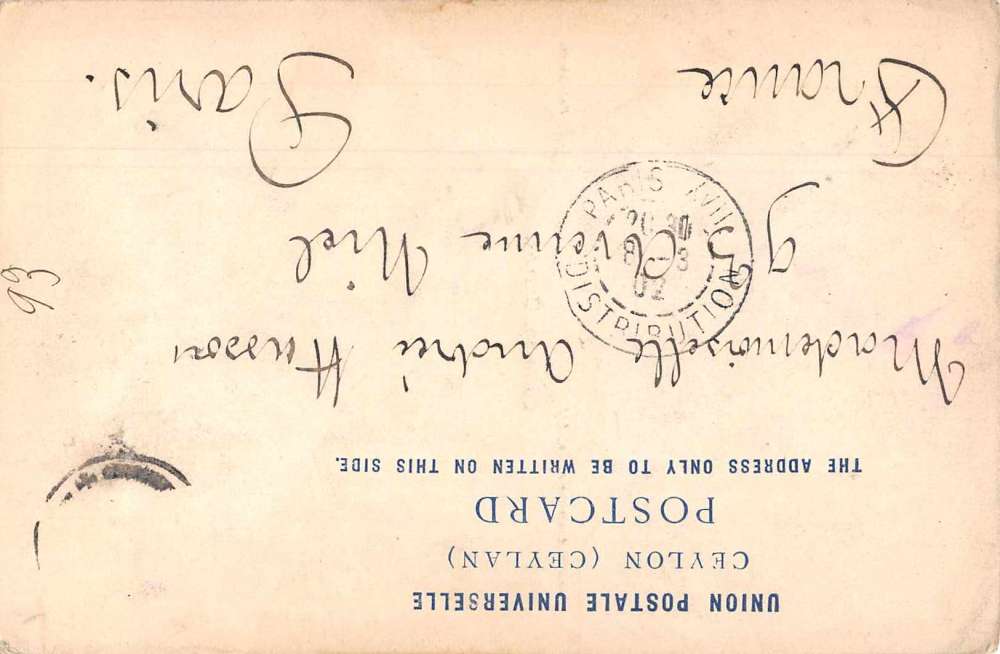 UNION POSTALE UNIVERSELLE
CEYLON (CEYLAN)
POSTCARD
THE ADDRESS ONLY TO BE WRITTEN ON THIS SIDE.
Mademoiselle André Husson
9 Avenue Niel
Paris.
France
93
PARIS XVII
DISTRIBUTION
02